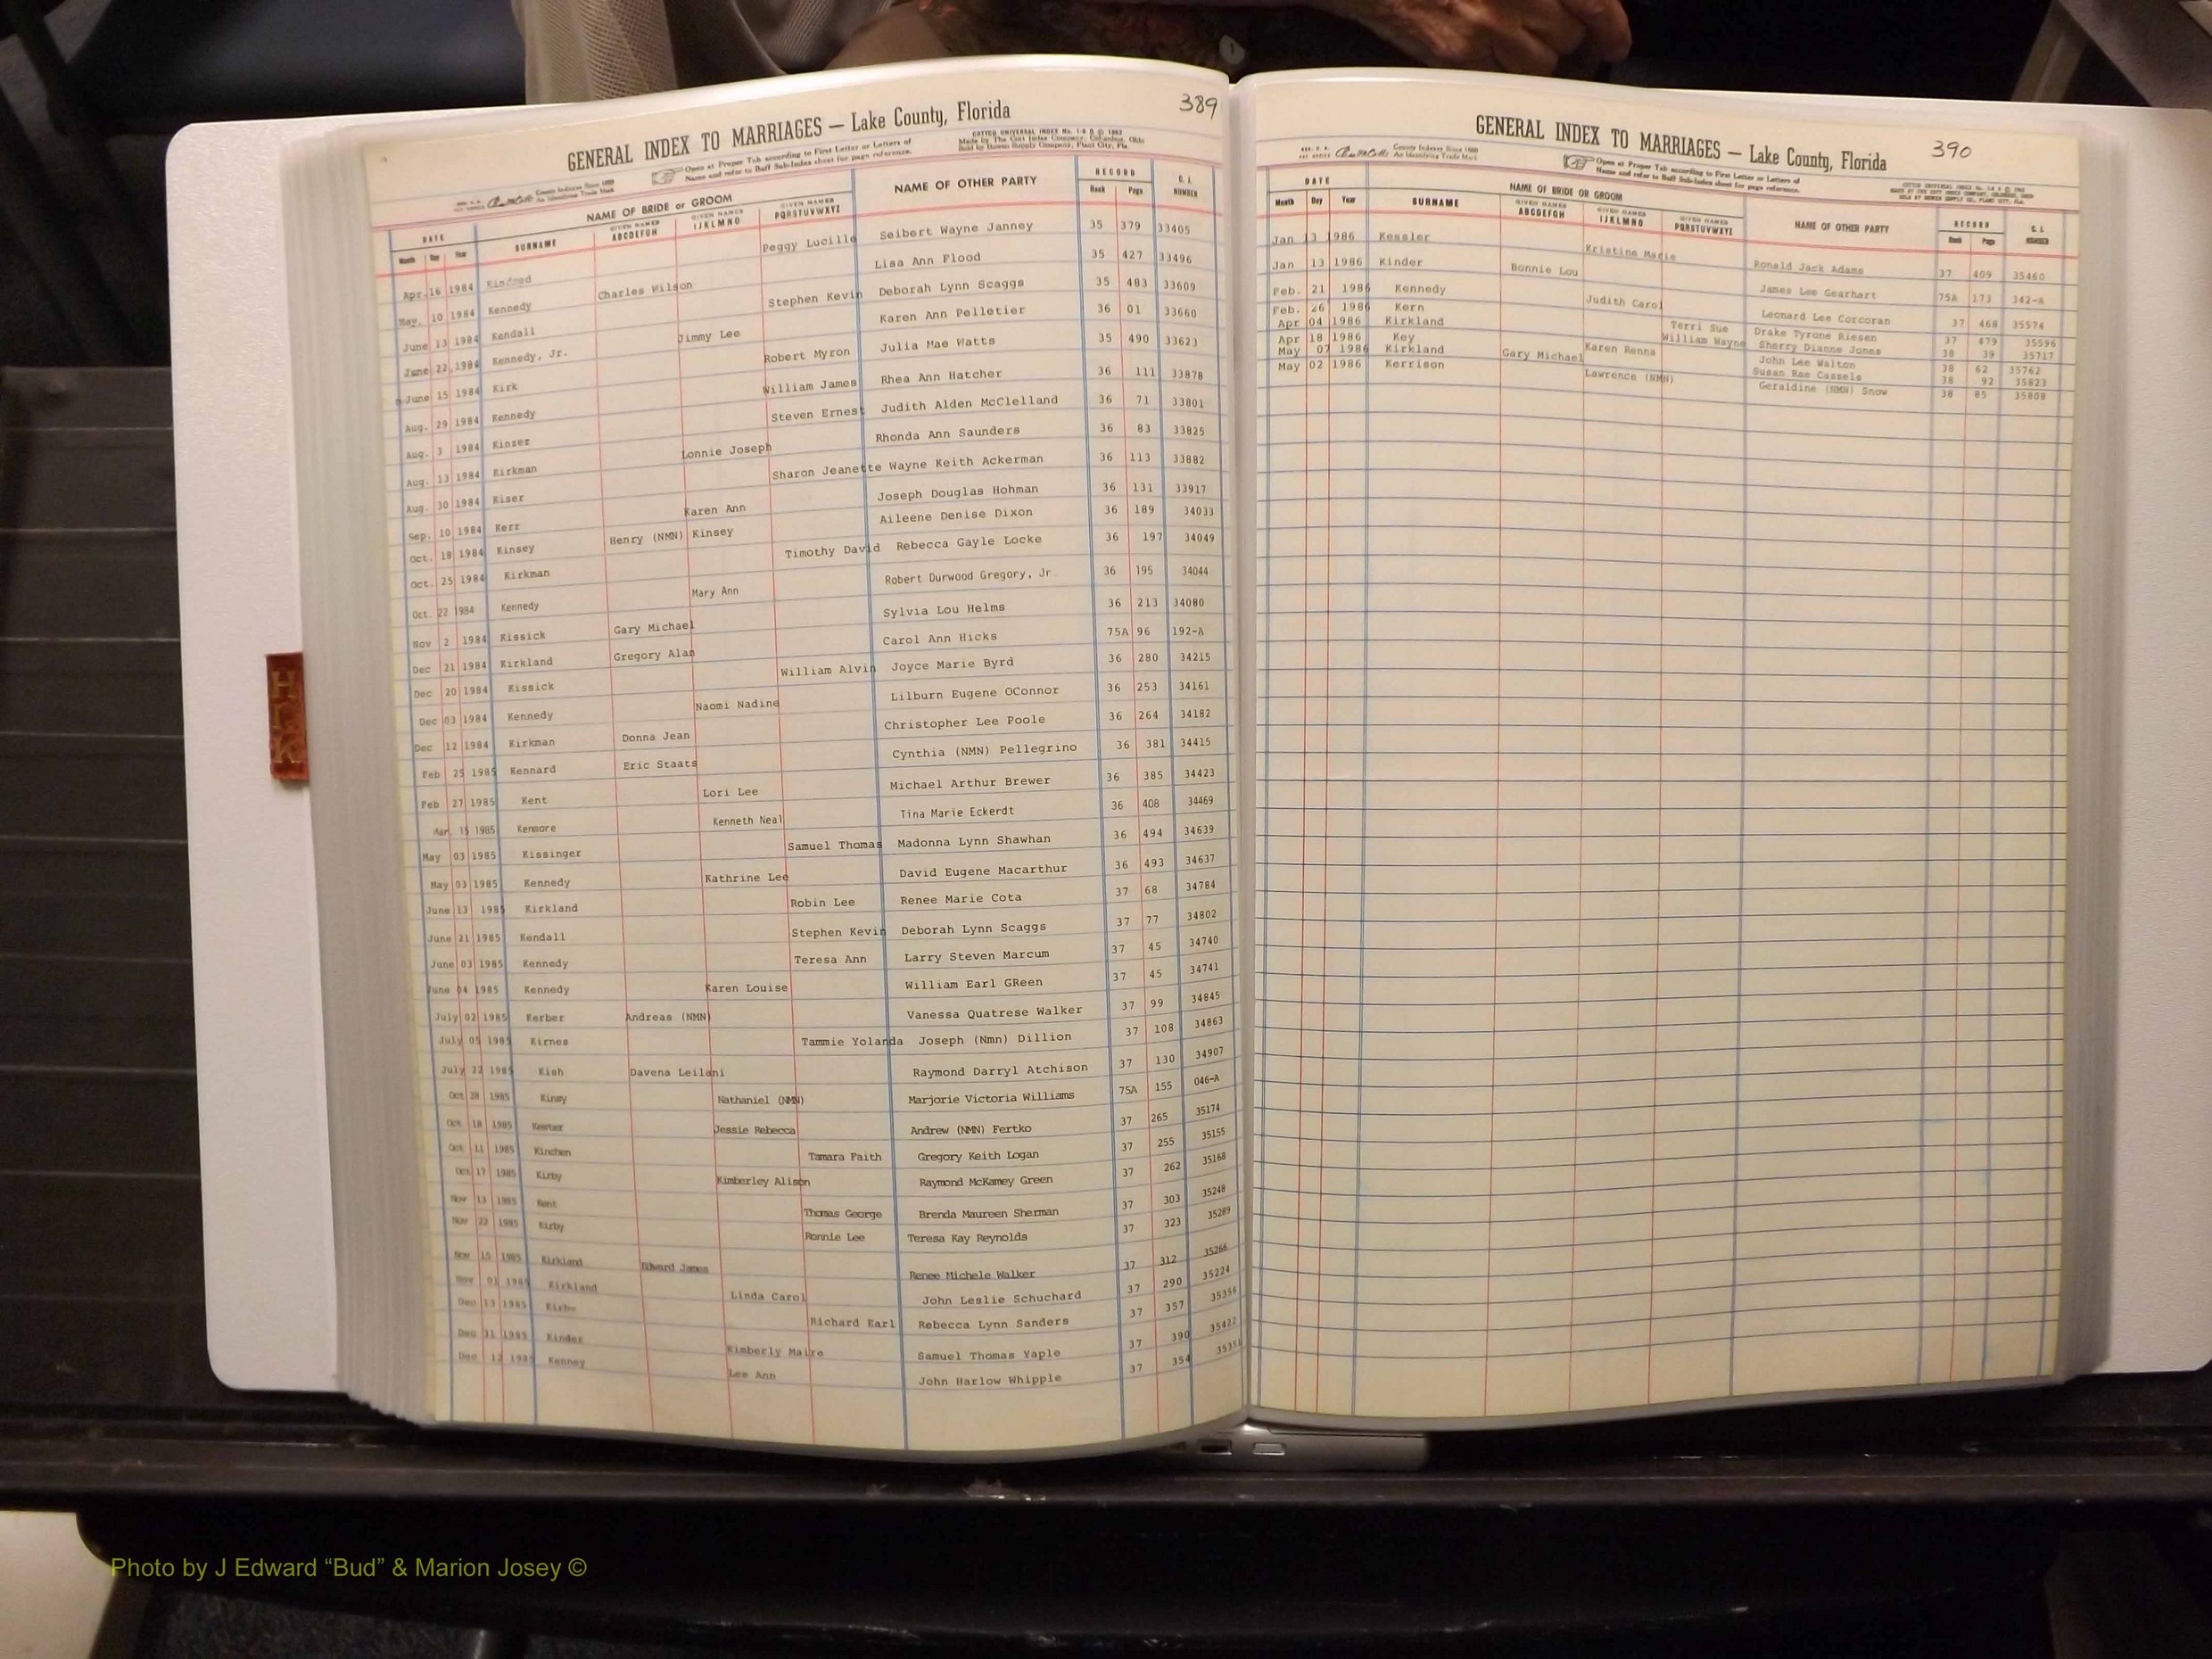 389
GENERAL INDEX TO MARRIAGES — Lake County, Florida
Open at Proper Tab according to First Letter or Letters of
Name and refer to Buff Sub-Index sheet for page reference.
County Indexes Since 1888
An Identifying Trade Mark
DATE NAME OF BRIDE or GROOM NAME OF OTHER PARTY RECORD C. I. NUMBER
Month Day Year SURNAME GIVEN NAMES ABCDEFGH GIVEN NAMES IJKLMNO GIVEN NAMES PQRSTUVWXYZ Book Page
Apr. 16 1984 Kindred Peggy Lucille Seibert Wayne Janney 35 379 33405
May. 10 1984 Kennedy Charles Wilson Lisa Ann Flood 35 427 33496
June 13 1984 Kendall Stephen Kevin Deborah Lynn Scaggs 35 483 33609
June 22, 1984 Kennedy, Jr. Jimmy Lee Karen Ann Pelletier 36 01 33660
June 15 1984 Kirk Robert Myron Julia Mae Watts 35 490 33623
Aug. 29 1984 Kennedy William James Rhea Ann Hatcher 36 111 33878
Aug. 3 1984 Kinzer Steven Ernest Judith Alden McClelland 36 71 33801
Aug. 13 1984 Kirkman Lonnie Joseph Rhonda Ann Saunders 36 83 33825
Aug. 30 1984 Kiser Sharon Jeanette Wayne Keith Ackerman 36 113 33882
Sep. 10 1984 Kerr Karen Ann Joseph Douglas Hohman 36 131 33917
Oct. 18 1984 Kinsey Henry (NMN) Kinsey Aileene Denise Dixon 36 189 34033
Oct. 25 1984 Kirkman Timothy David Rebecca Gayle Locke 36 197 34049
Oct. 22 1984 Kennedy Mary Ann Robert Durwood Gregory, Jr 36 195 34044
Nov 2 1984 Kissick Gary Michael Sylvia Lou Helms 36 213 34080
Dec 21 1984 Kirkland Gregory Alan Carol Ann Hicks 75A 96 192-A
Dec 20 1984 Kissick William Alvin Joyce Marie Byrd 36 280 34215
Dec 03 1984 Kennedy Naomi Nadine Lilburn Eugene OConnor 36 253 34161
Dec 12 1984 Kirkman Donna Jean Christopher Lee Poole 36 264 34182
Feb 25 1985 Kennard Eric Staats Cynthia (NMN) Pellegrino 36 381 34415
Feb 27 1985 Kent Lori Lee Michael Arthur Brewer 36 385 34423
Mar. 15 1985 Kenmore Kenneth Neal Tina Marie Eckerdt 36 408 34469
May 03 1985 Kissinger Samuel Thomas Madonna Lynn Shawhan 36 494 34639
May 03 1985 Kennedy Kathrine Lee David Eugene Macarthur 36 493 34637
June 13 1985 Kirkland Robin Lee Renee Marie Cota 37 68 34784
June 21 1985 Kendall Stephen Kevin Deborah Lynn Scaggs 37 77 34802
June 03 1985 Kennedy Teresa Ann Larry Steven Marcum 37 45 34740
June 04 1985 Kennedy Karen Louise William Earl GReen 37 45 34741
July 02 1985 Kerber Andreas (NMN) Vanessa Quatrese Walker 37 99 34845
July 05 1985 Kirnes Tammie Yolanda Joseph (Nmn) Dillion 37 108 34863
July 22 1985 Kish Davena Leilani Raymond Darryl Atchison 37 130 34907
Oct 28 1985 Kinsy Nathaniel (NMN) Marjorie Victoria Williams 75A 155 046-A
Oct 18 1985 Jessie Rebecca Andrew (NMN) Fertko 37 265 35174
Oct 11 1985 Kinchen Tamara Faith Gregory Keith Logan 37 255 35155
Oct 17 1985 Kirby Kimberley Alison Raymond McKamey Green 37 262 35168
Nov 13 1985 Kent Thomas George Brenda Maureen Sherman 37 303 35248
Nov 23 1985 Kirby Ronnie Lee Teresa Kay Reynolds 37 323 35289
Nov 15 1985 Kirkland Edward James Renee Michele Walker 37 312 35266
Nov 01 1985 Kirkland Linda Carol John Leslie Schuchard 37 290 35224
Dec 13 1985 Kirby Richard Earl Rebecca Lynn Sanders 37 357 35356
Dec 31 1985 Kinder Kimberly Maire Samuel Thomas Yaple 37 390 35422
Dec 12 1985 Kenney Lee Ann John Harlow Whipple 37 354
390
GENERAL INDEX TO MARRIAGES — Lake County, Florida
Open at Proper Tab according to First Letter or Letters of
Name and refer to Buff Sub-Index sheet for page reference.
County Indexes Since 1888
An Identifying Trade Mark
DATE NAME OF BRIDE OR GROOM NAME OF OTHER PARTY RECORD C. I. NUMBER
Month Day Year SURNAME GIVEN NAMES ABCDEFGH GIVEN NAMES IJKLMNO GIVEN NAMES PQRSTUVWXYZ Book Page
Jan 13 1986 Kessler Kristine Marie Ronald Jack Adams 37 409 35460
Jan 13 1986 Kinder Bonnie Lou James Lee Gearhart 75A 173 342-A
Feb. 21 1986 Kennedy Judith Carol Leonard Lee Corcoran 37 468 35574
Feb. 26 1986 Kern Terri Sue Drake Tyrone Riesen 37 479 35596
Apr 04 1986 Kirkland William Wayne Sherry Dianne Jones 38 39 35717
Apr 18 1986 Key Karen Renna John Lee Walton 38 62 35762
May 07 1986 Kirkland Gary Michael Susan Rae Cassels 38 92 35823
May 02 1986 Kerrison Lawrence (NMN) Geraldine (NMN) Snow 38 85 35808
Photo by J Edward “Bud” & Marion Josey ©